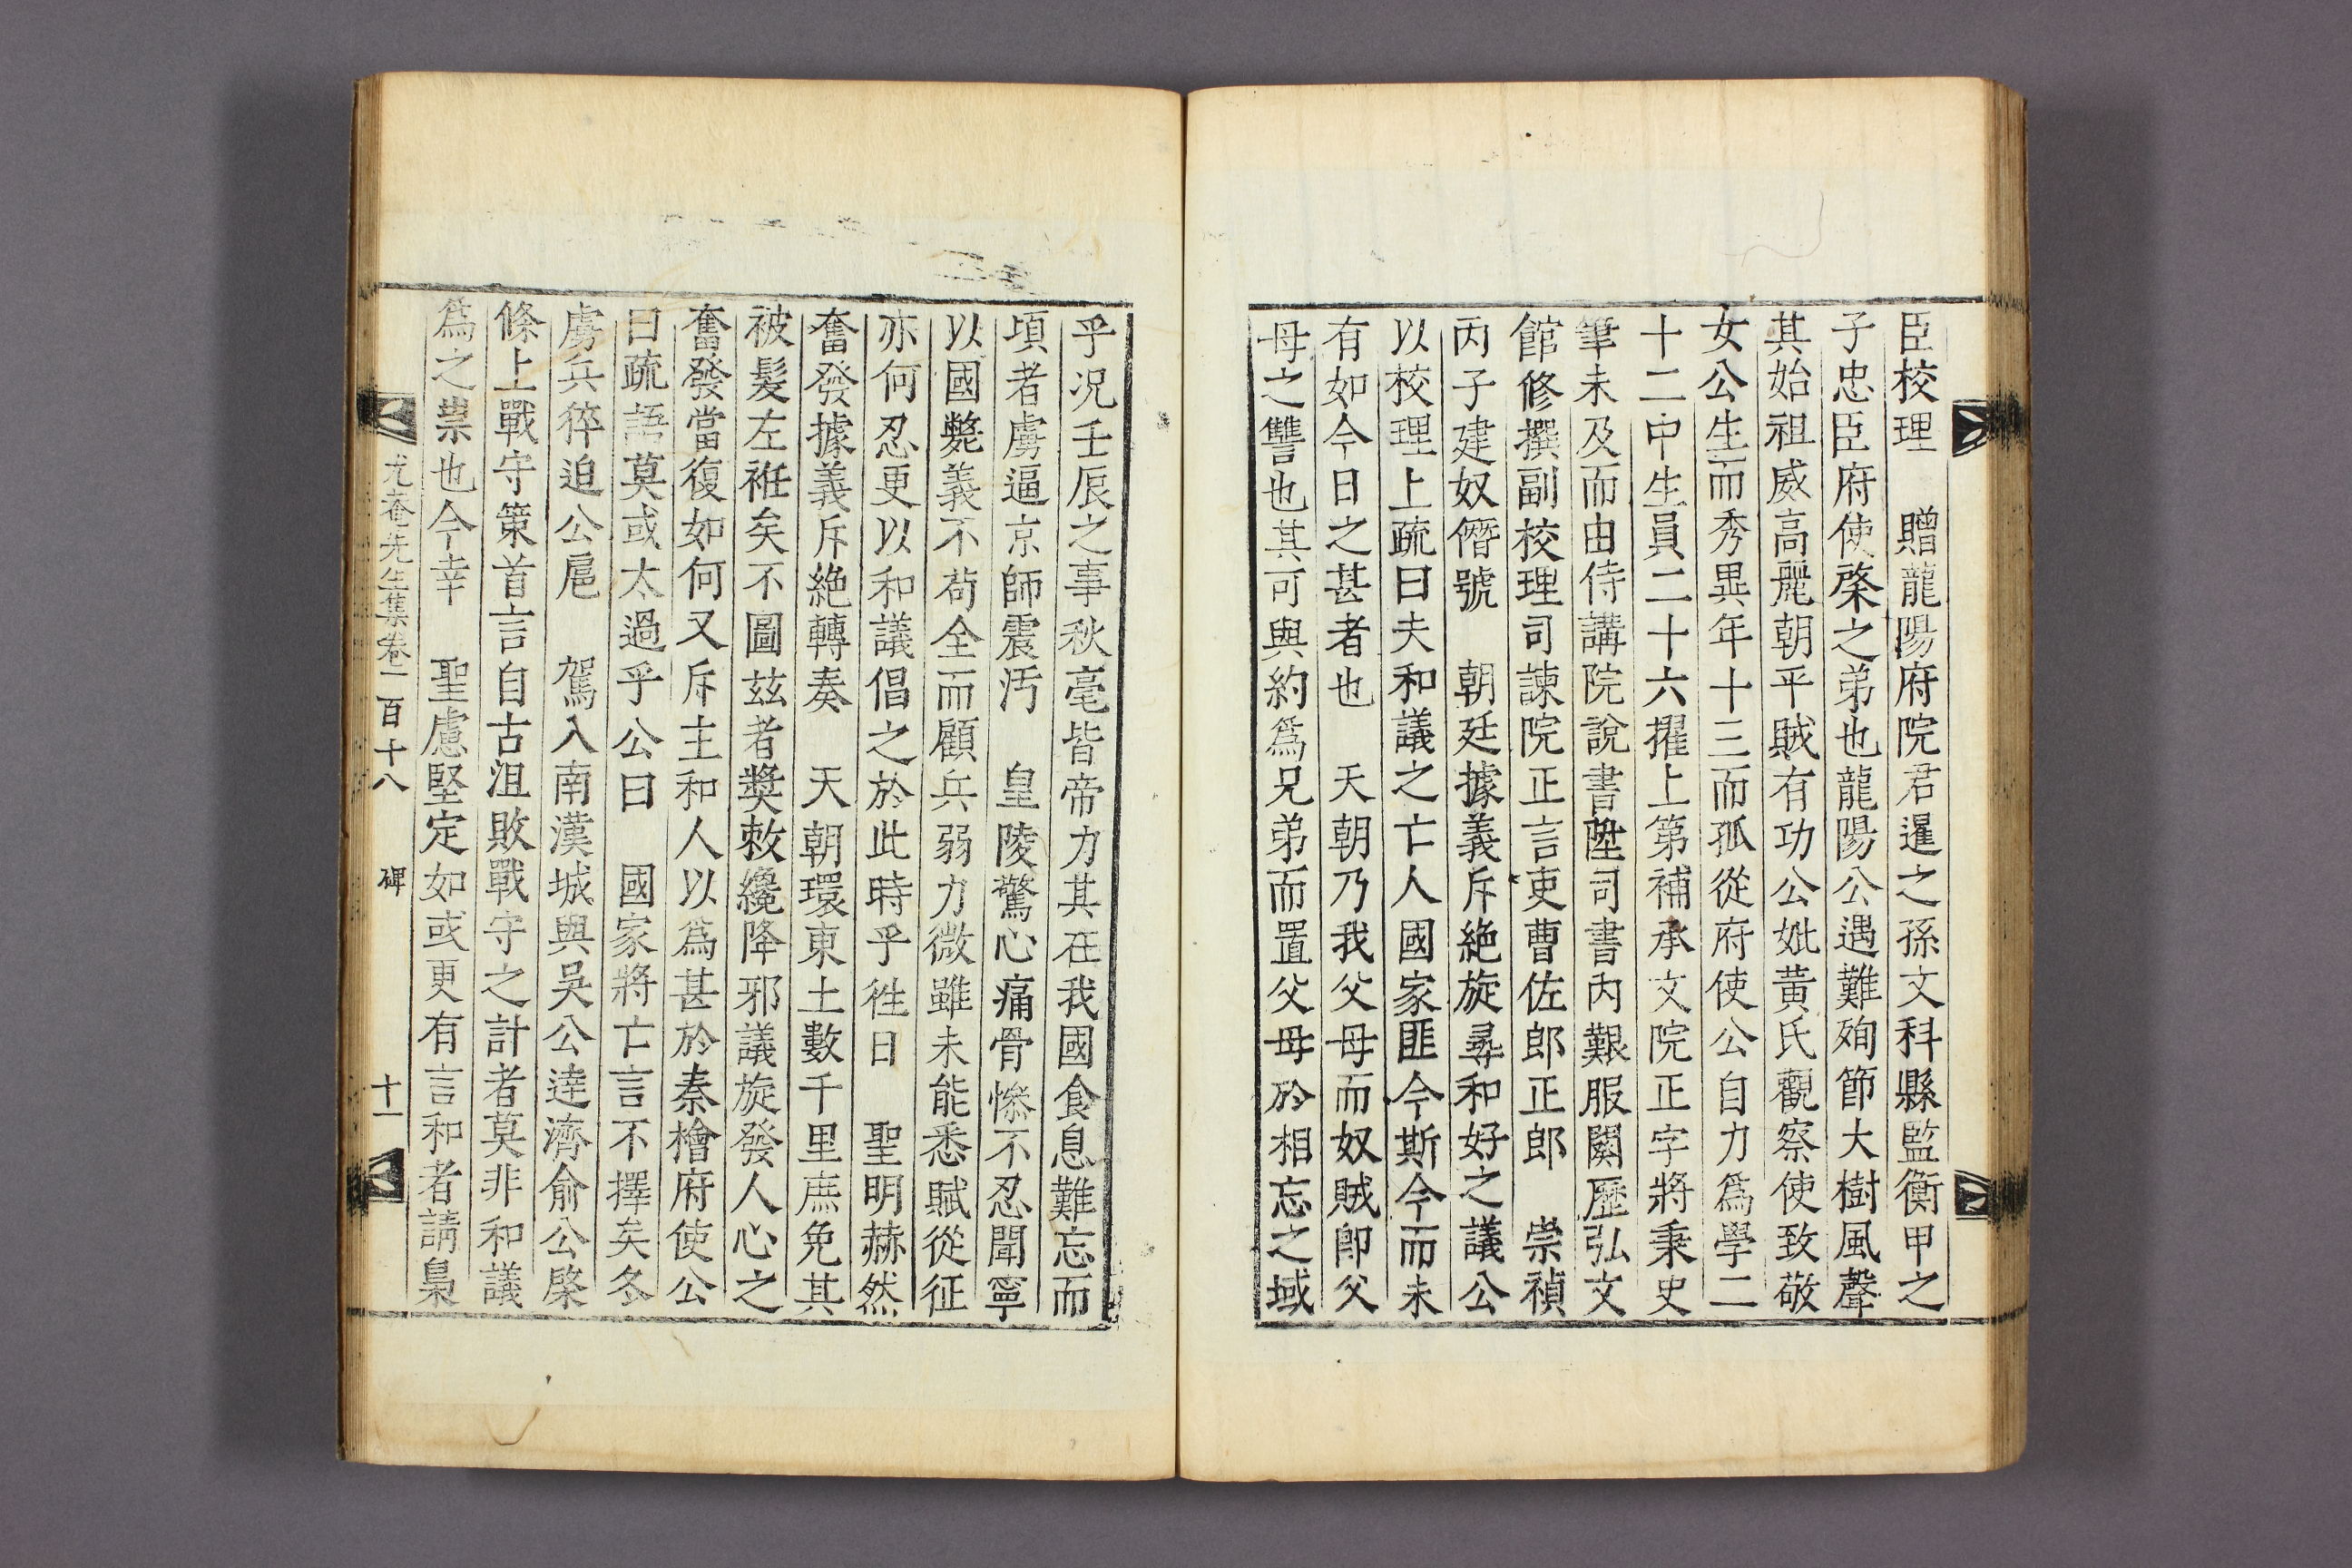 臣校理　贈龍陽府院君暹之孫文科縣監衡甲之
子忠臣府使棨之弟也龍陽公遇難殉節大樹風聲
其始祖威高麗朝平賊有功公妣黃氏觀察使致敬
女公生而秀異年十三而孤從府使公自力爲學二
十二中生員二十六擢上第補承文院正字將秉史
筆未及而由侍講院說書陞司書內艱服闋歷弘文
館修撰副校理司諫院正言吏曹佐郎正郎　崇禎
丙子建奴僭號　朝廷據義斥絶旋尋和好之議公
以校理上疏曰夫和議之亡人國家匪今斯今而未
有如今日之甚者也　天朝乃我父母而奴賊卽父
母之讐也其可與約爲兄弟而置父母於相忘之域
乎况壬辰之事秋毫皆帝力其在我國食息難忘而
頃者虜逼京師震汚　皇陵驚心痛骨慘不忍聞寧
以國斃義不苟全而顧兵弱力微雖未能悉賦從征
亦何忍更以和議倡之於此時乎徃日　聖明赫然
奮發據義斥絶轉奏　天朝環東土數千里庶免其
被髮左袵矣不圖玆者獎敕纔降邪議旋發人心之
奮發當復如何又斥主和人以爲甚於秦檜府使公
曰疏語莫或太過乎公曰　國家將亡言不擇矣冬
虜兵猝迫公扈　駕入南漢城與吳公達濟俞公棨
條上戰守策首言自古沮敗戰守之計者莫非和議
爲之祟也今幸　聖慮堅定如或更有言和者請梟
尤菴先生集卷一百十八　碑　十一